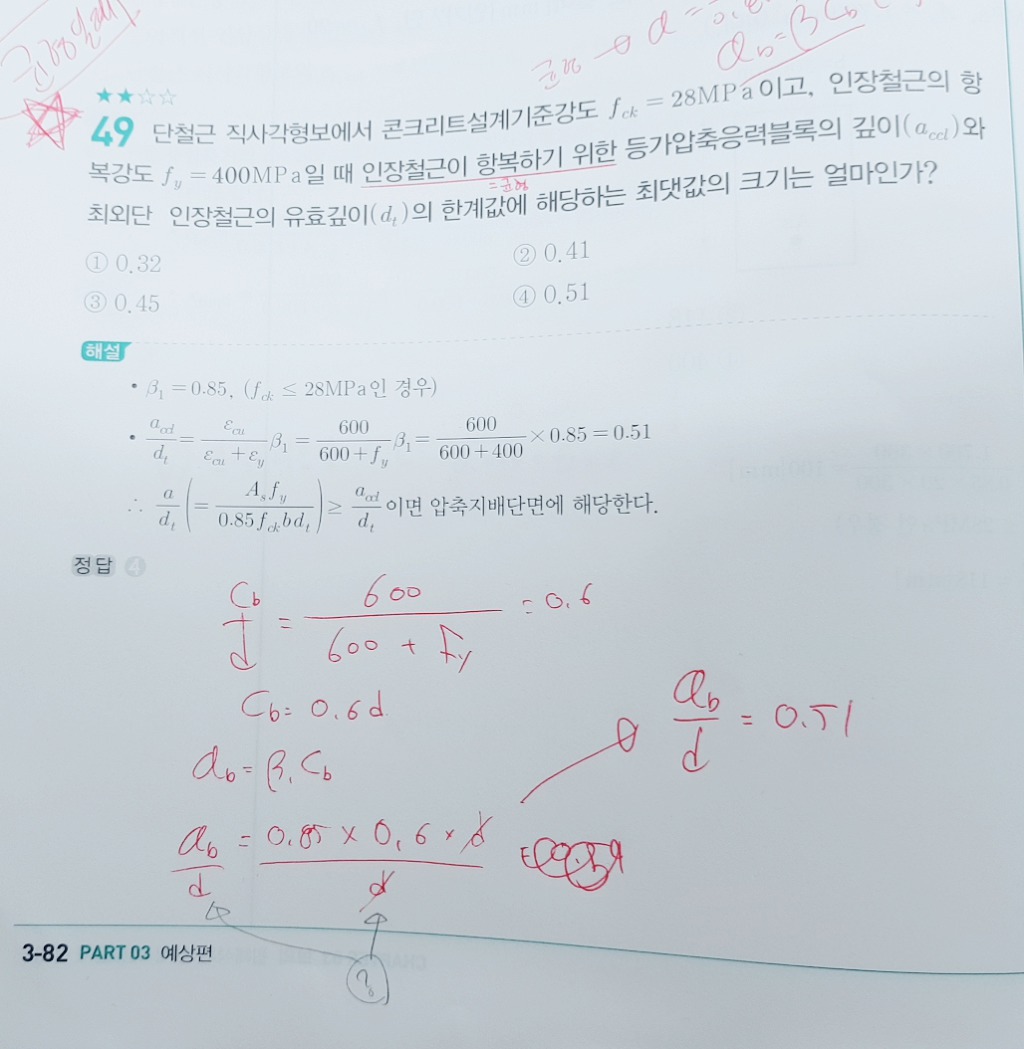 균형일때
균형 → a =
a_b = βC_b
★★☆☆
49 단철근 직사각형보에서 콘크리트설계기준강도 f_ck = 28MPa이고, 인장철근의 항
복강도 f_y = 400MPa일 때 인장철근이 항복하기 위한 등가압축응력블록의 깊이(a_ccl)와
=균형
최외단 인장철근의 유효깊이(d_t)의 한계값에 해당하는 최댓값의 크기는 얼마인가?
① 0.32 ② 0.41
③ 0.45 ④ 0.51
해설
• β_1 = 0.85, (f_ck ≤ 28MPa인 경우)
• a_ccl/d_t = ε_cu/(ε_cu + ε_y) β_1 = 600/(600 + f_y) β_1 = 600/(600 + 400) × 0.85 = 0.51
∴ a/d_t (= A_s f_y/(0.85 f_ck b d_t)) ≥ a_ccl/d_t 이면 압축지배단면에 해당한다.
정답 ④
C_b/d = 600/(600 + f_y) = 0.6
C_b = 0.6d
a_b/d = 0.51
a_b = β_1 C_b
a_b/d = 0.85 × 0.6 × d/d
?
3-82 PART 03 예상편